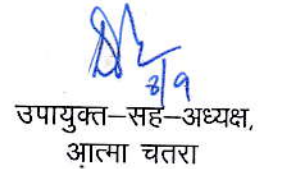 8/9
उपायुक्त–सह–अध्यक्ष,
आत्मा चतरा